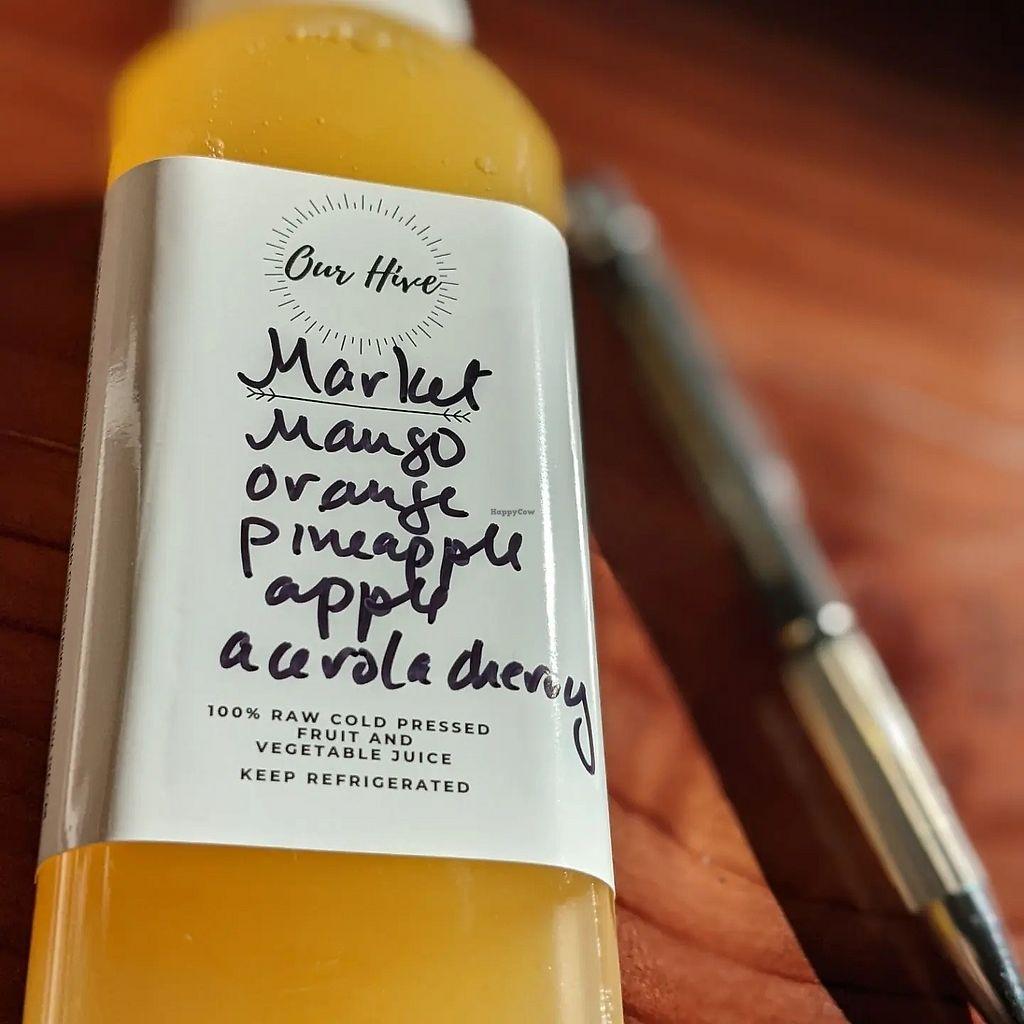 Our Hive
Market
Mango
orange
pineapple
apple
acerola cherry
100% RAW COLD PRESSED
FRUIT AND
VEGETABLE JUICE
KEEP REFRIGERATED
HappyCow